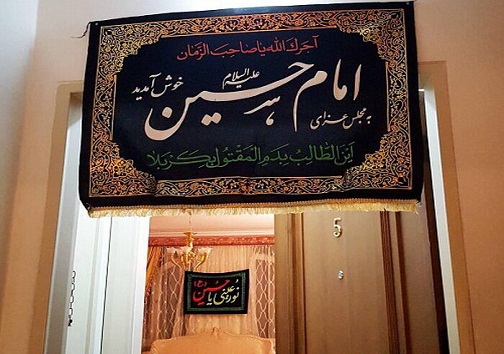 آجرك الله يا صاحب الزمان
به مجلس عزای امام حسین علیه السلام خوش آمدید
أين الطالب بدم المقتول بكربلا
5
نور عینی یا حسین (ع)